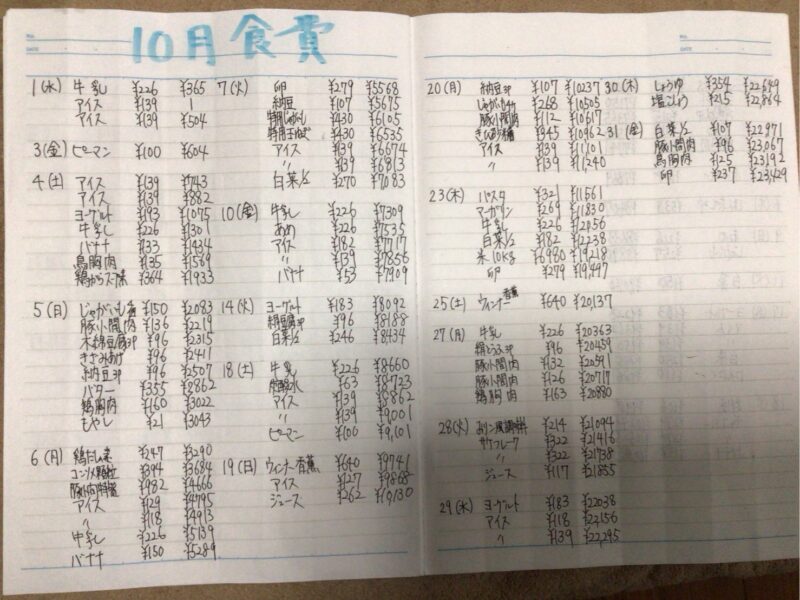 10月食費
1(水) 牛乳 ¥226 ¥365
アイス ¥139 1
アイス ¥139 ¥504
3(金) ピーマン ¥100 ¥604
4(土) アイス ¥139 ¥743
アイス ¥139 ¥882
ヨーグルト ¥193 ¥1075
牛乳 ¥226 ¥1301
バナナ ¥133 ¥1434
鳥胸肉 ¥135 ¥1569
鶏がらスープ素 ¥364 ¥1933
5(日) じゃがいも ¥150 ¥2083
豚小間肉 ¥136 ¥2219
木綿豆腐3P ¥96 ¥2315
きざみあげ ¥96 ¥2411
納豆3P ¥96 ¥2507
バター ¥355 ¥2862
鶏胸肉 ¥160 ¥3022
もやし ¥21 ¥3043
6(月) ¥247 ¥3290
コンソメ顆粒 ¥394 ¥3684
¥932 ¥4666
アイス ¥129 ¥4795
〃 ¥118 ¥4913
牛乳 ¥226 ¥5139
バナナ ¥150 ¥5289
7(火) 卵 ¥279 ¥5568
納豆 ¥107 ¥5675
¥430 ¥6105
特用玉ねぎ ¥430 ¥6535
アイス ¥139 ¥6674
〃 ¥139 ¥6813
白菜1/2 ¥270 ¥7083
10(金) 牛乳 ¥226 ¥7309
あめ ¥226 ¥7535
アイス ¥182 ¥7717
〃 ¥139 ¥7856
バナナ ¥53 ¥7909
14(火) ヨーグルト ¥183 ¥8092
絹豆腐3P ¥96 ¥8188
白菜1/2 ¥246 ¥8434
18(土) 牛乳 ¥226 ¥8660
炭酸水 ¥63 ¥8723
アイス ¥139 ¥8862
〃 ¥139 ¥9001
ピーマン ¥100 ¥9,101
19(日) ウィンナー香薫 ¥640 ¥9741
アイス ¥127 ¥9868
ジュース ¥262 ¥10,130
20(月) 納豆3P ¥107 ¥10237
じゃがいも ¥268 ¥10505
豚小間肉 ¥112 ¥10617
きび砂糖 ¥345 ¥10962
アイス ¥139 ¥11101
〃 ¥139 ¥11,240
23(木) パスタ ¥321 ¥11561
マーガリン ¥269 ¥11830
牛乳 ¥226 ¥12056
白菜1/2 ¥182 ¥12238
米10kg ¥6980 ¥19218
卵 ¥279 ¥19,497
25(土) ウィンナー香薫 ¥640 ¥20,137
27(月) 牛乳 ¥226 ¥20363
絹とうふ3P ¥96 ¥20459
豚小間肉 ¥132 ¥20591
豚小間肉 ¥126 ¥20717
鶏胸肉 ¥163 ¥20880
28(火) ¥214 ¥21094
サケフレーク ¥322 ¥21416
〃 ¥322 ¥21738
ジュース ¥117 ¥21855
29(水) ヨーグルト ¥183 ¥22038
アイス ¥118 ¥22156
〃 ¥139 ¥22,295
30(木) しょうゆ ¥354 ¥22,649
塩こしょう ¥215 ¥22,864
31(金) 白菜1/2 ¥107 ¥22,971
豚小間肉 ¥96 ¥23,067
鳥胸肉 ¥125 ¥23,192
卵 ¥237 ¥23,429